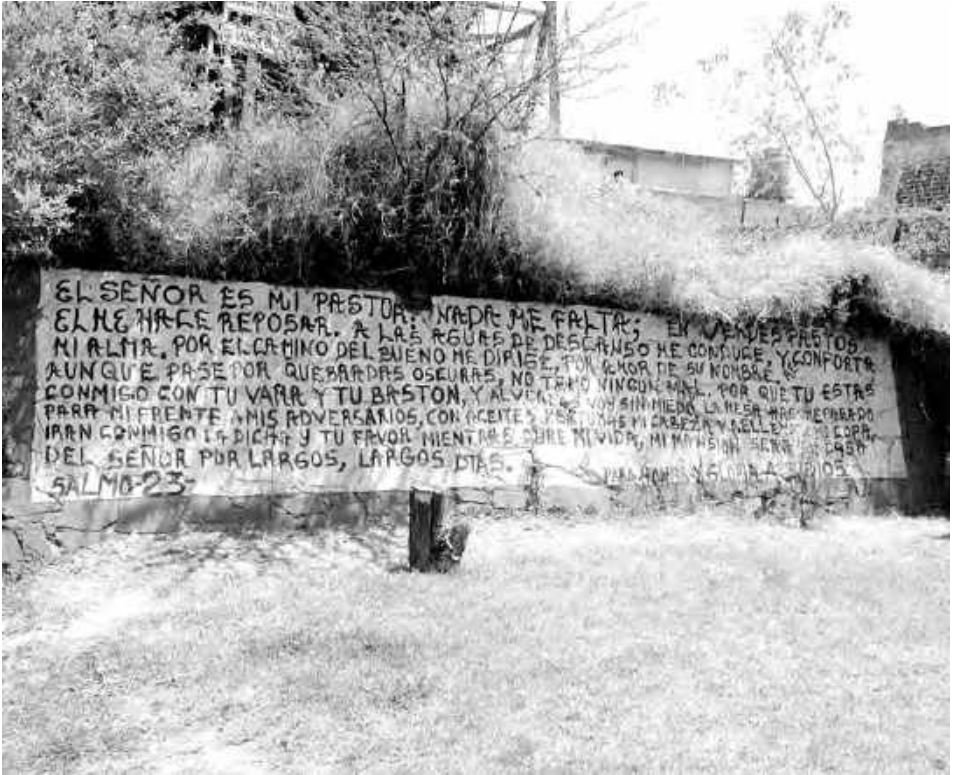 EL SEÑOR ES MI PASTOR: NADA ME FALTA; EN VERDES PASTOS
EL ME HACE REPOSAR. A LAS AGUAS DE DESCANSO ME CONDUCE, Y CONFORTA
MI ALMA. POR EL CAMINO DEL BUENO ME DIRIGE, POR AMOR DE SU NOMBRE.
AUNQUE PASE POR QUEBRADAS OSCURAS, NO TEMO NINGUN MAL. POR QUE TU ESTAS
CONMIGO CON TU VARA Y TU BASTON, Y AL VERLAS VOY SIN MIEDO. LA MESA HAS PREPARADO
PARA MI FRENTE A MIS ADVERSARIOS, CON ACEITES PERFUMAS MI CABEZA Y RELLENAS MI COPA.
IRAN CONMIGO LA DICHA Y TU FAVOR MIENTRAS DURE MI VIDA, MI MANSION SERA LA CASA
DEL SEÑOR POR LARGOS, LARGOS DIAS.
Y GLORIA A DIOS
SALMO-23-